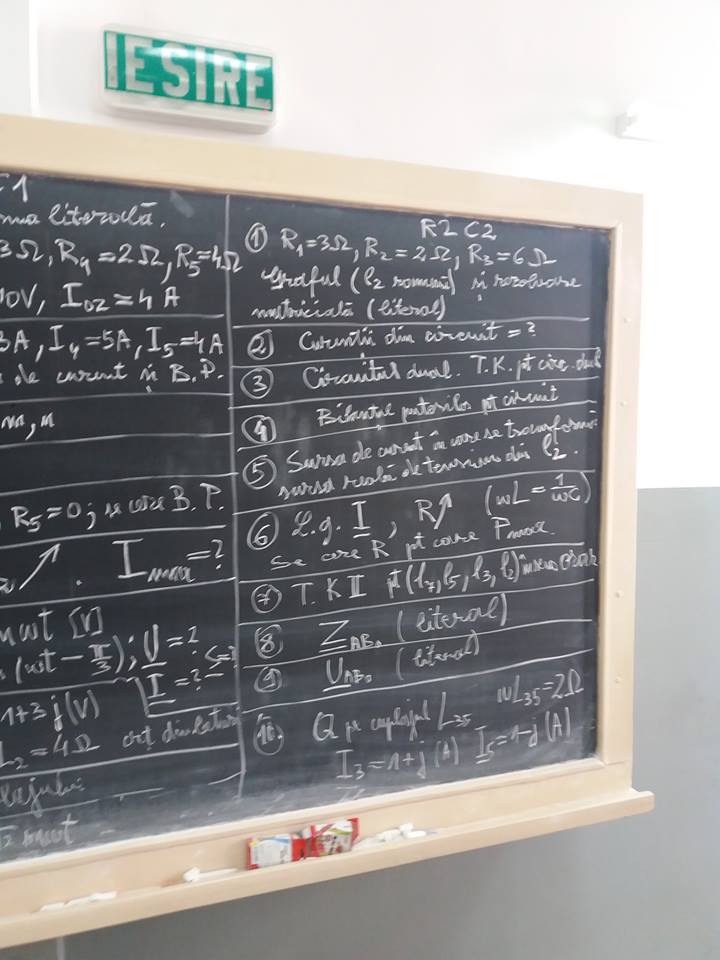 IESIRE
C1
ma literală.
3Ω, R4=2Ω, R5=4Ω
0V, I02=4A
3A, I4=5A, I5=4A
de curent și B.P.
R5=0; se cere B.P.
Imax=?
(ωt - π/3); U=?
I=?
1+3j(V)
L2=4Ω
R2C2
① R1=3Ω, R2=2Ω, R3=6Ω
Graful (l2 ramură) și rezolvare
matricială (literal)
② Curenții din circuit = ?
③ Circuitul dual. T.K. pt circ. dual
④ Bilanțul puterilor pt circuit
⑤ Sursa de curent în care se transformă
sursa reală de tensiune din l2.
⑥ L.g. I, R↗ (ωL = 1/ωC)
Se cere R pt care Pmax
⑦ T.KII pt (l7, l5, l3, l2) în sens orar
⑧ ZAB0 (literal)
⑨ UAB0 (literal)
10. Q pe cuplajul L35 ωL35=2Ω
I3=1+j(A) I5=1-j(A)